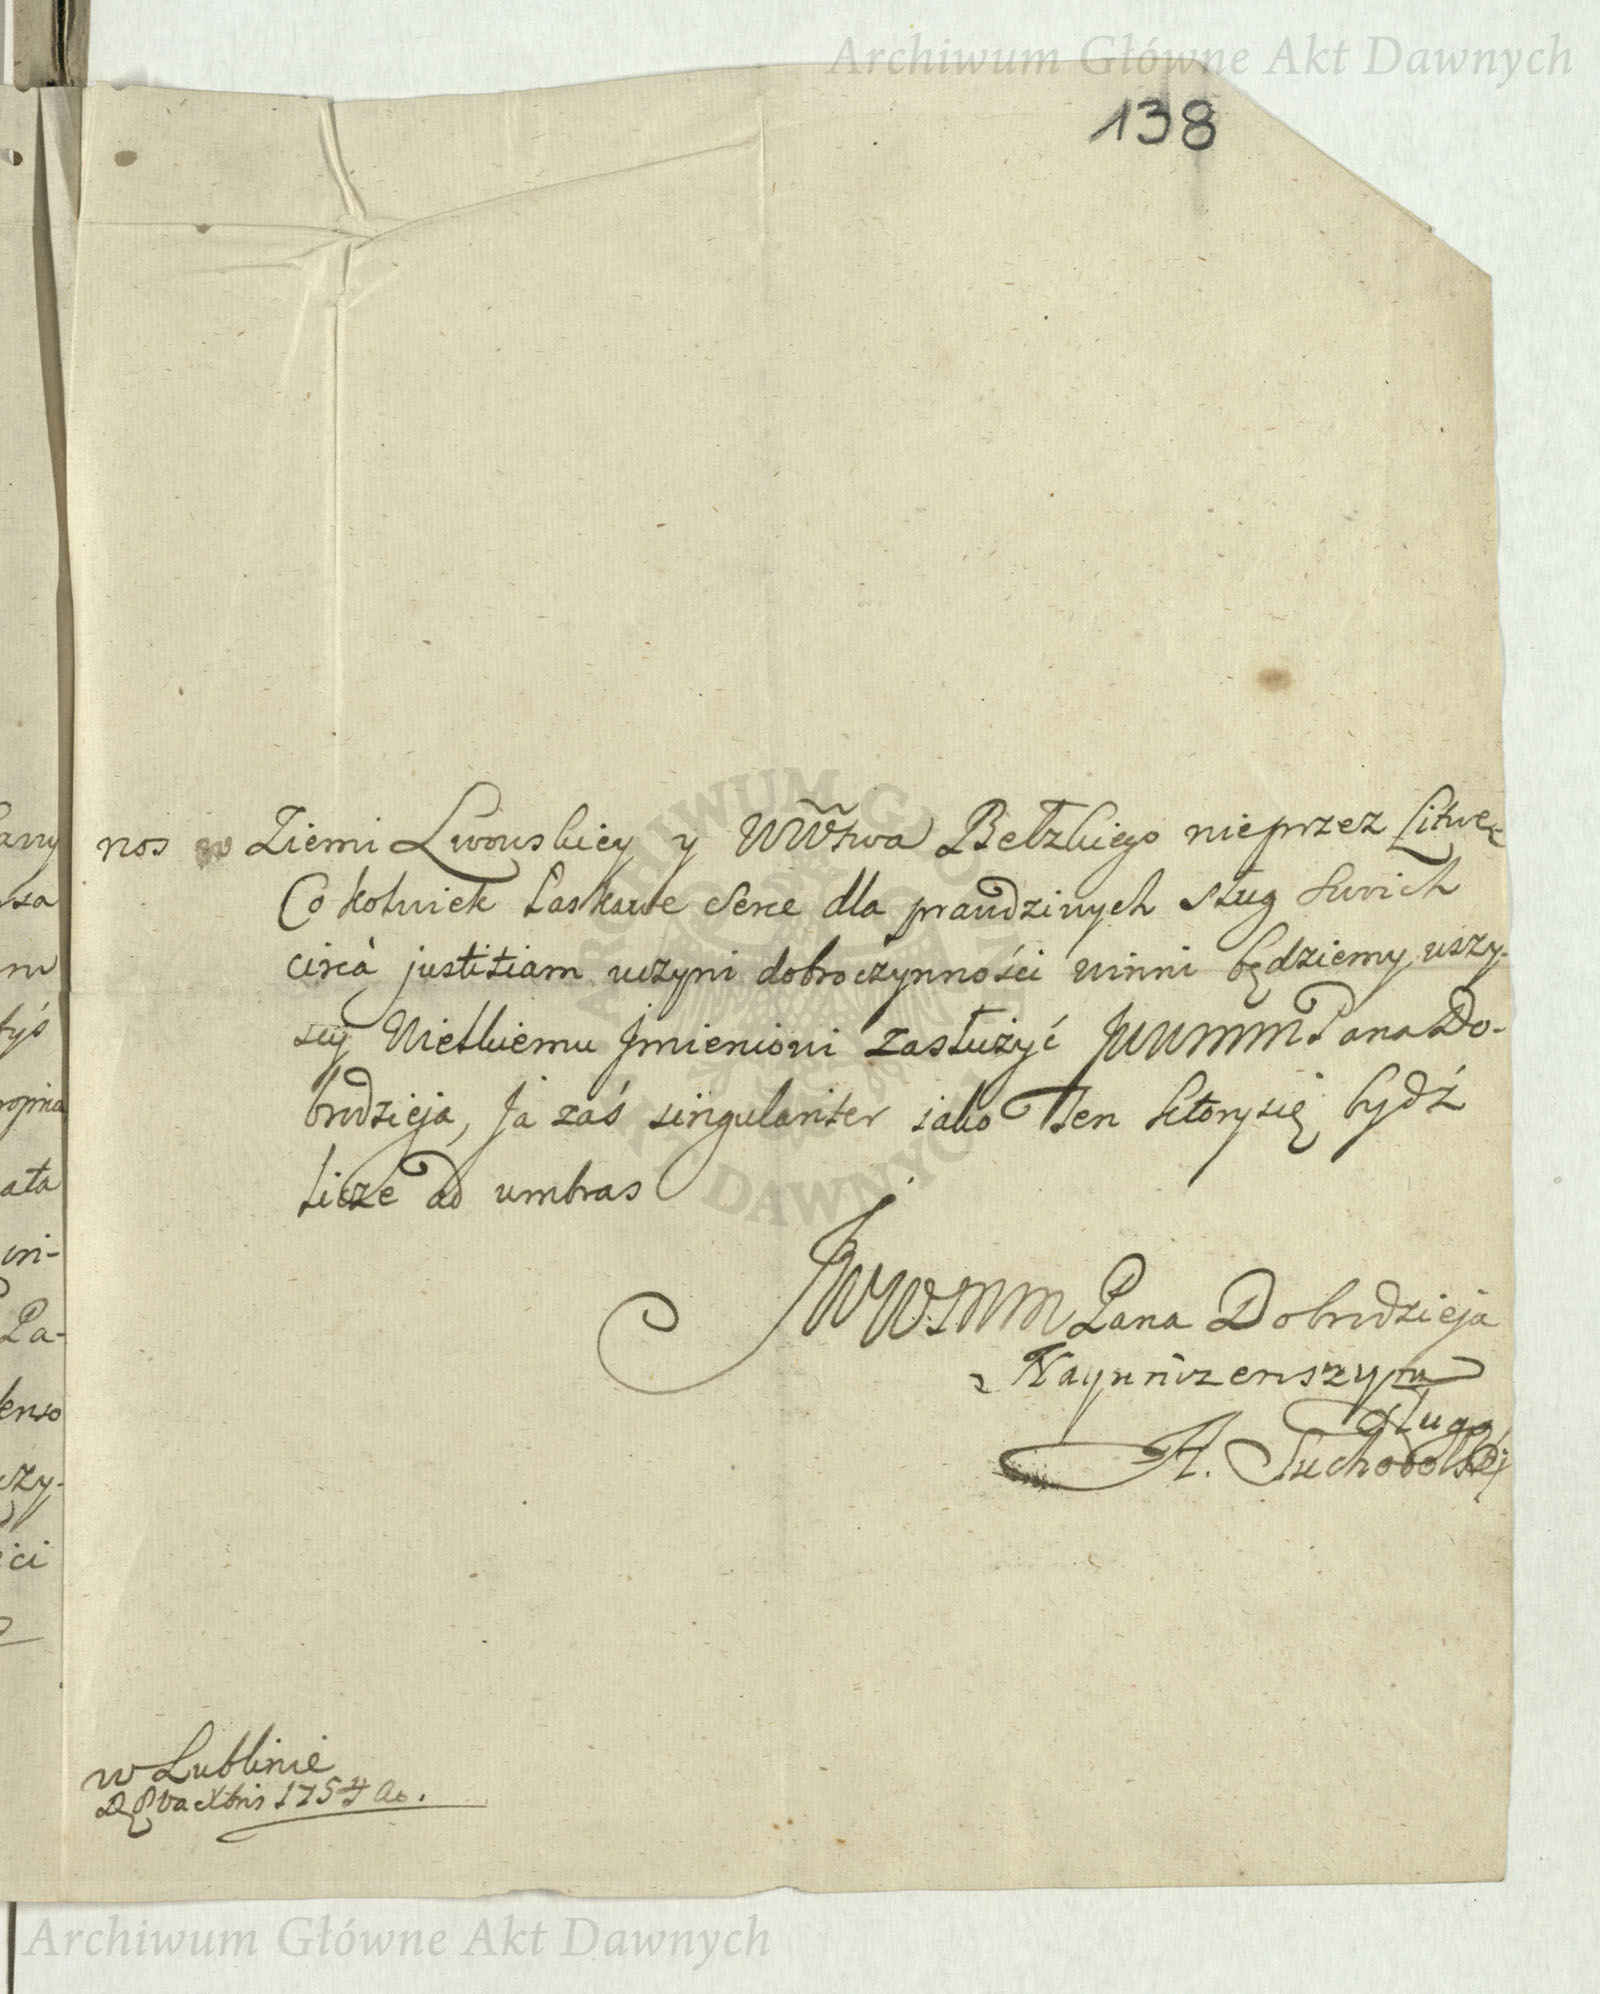 Archiwum Główne Akt Dawnych
138
nos w Ziemi Lwowskiey y WWtwa Bełzkiego nieprzez Litwę
Cokolwiek Łaskawe Serce dla prawdziwych sług swoich
circà justitiam uczyni dobroczynności winni będziemy wszy-
scy Wielkiemu Jmieniowi zasłużyć JWWMM Pana Do-
brodzieja, Ja zaś singulariter jako Ten który się bydź
liczę ad umbras
JWWMM Pana Dobrodzieja
Nayuniżenszym
Sługą
A. Suchodolski
w Lublinie
D 8va Xbris 1754 Ao.
ARCHIWUM GŁÓWNE AKT DAWNYCH
Archiwum Główne Akt Dawnych